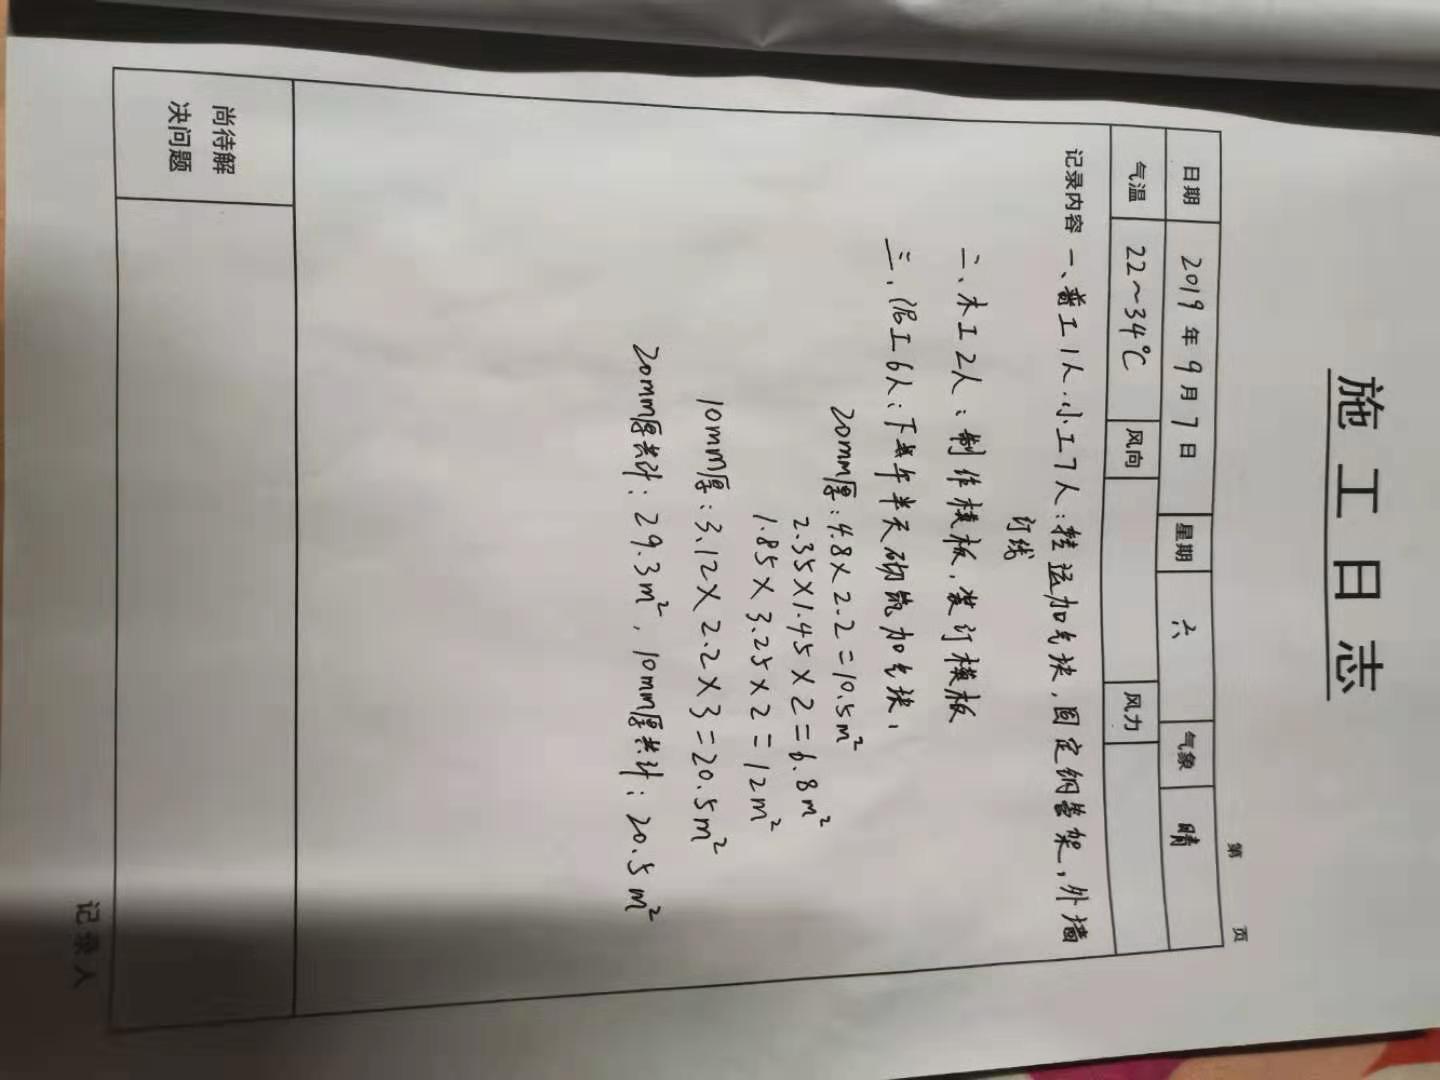 施工日志
第 页
日期 2019年9月7日 星期 六 气象 晴
气温 22~34℃ 风向 风力
记录内容 一、普工1人.小工7人:转运加气块,固定钢管架,外墙
订线
二、木工2人:制作模板,装订模板
三、泥工6人:下午半天砌筑加气块,
20mm厚:4.8×2.2=10.5m²
2.35×1.45×2=6.8m²
1.85×3.25×2=12m²
10mm厚:3.12×2.2×3=20.5m²
20mm厚共计:29.3m²,10mm厚共计:20.5m²
尚待解
决问题
记录人